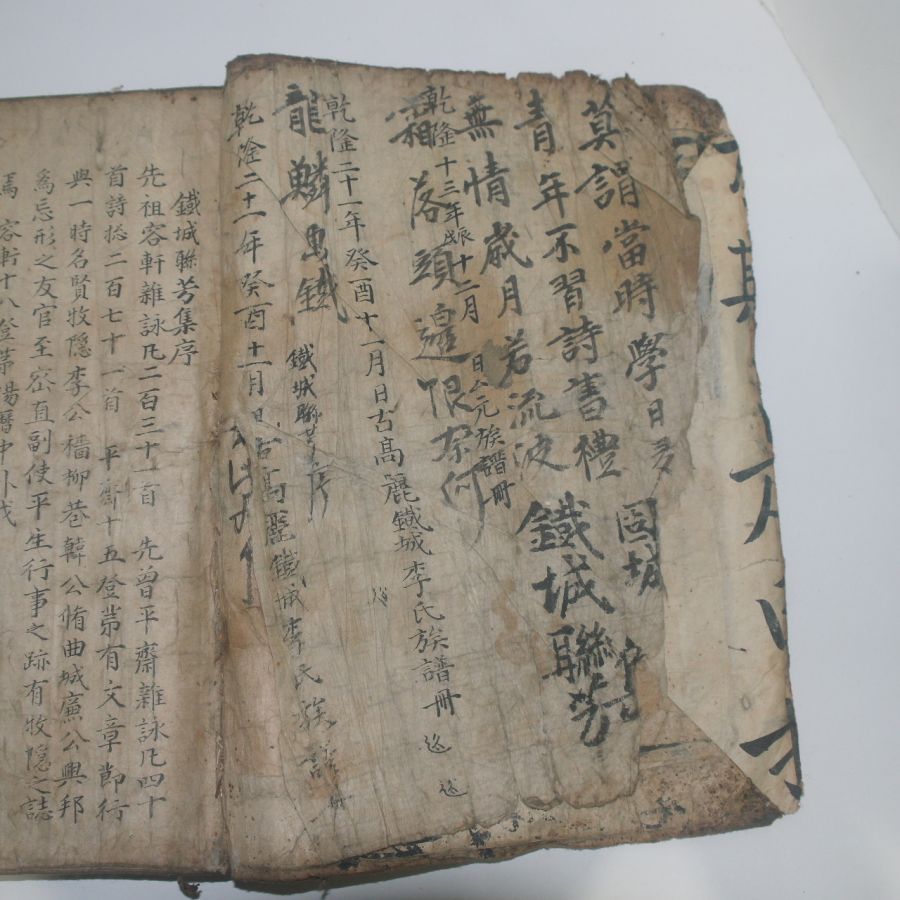 莫謂當時學日多
固城
青年不習詩書禮
鐵城聯芳
無情歲月若流波
乾隆十三年戊辰十二月日公元族譜冊
霜落頭邊恨奈何
乾隆二十一年癸酉十一月日古高麗鐵城李氏族譜冊
龍鱗出鐵
鐵城聯芳序
乾隆二十一年癸酉十一月日古高麗鐵城李氏族譜冊
鐵城聯芳集序
先祖容軒雜詠凡二百三十一首 先曾平齋雜詠凡四十
首詩總二百七十一首 平齋十五登第有文章節行
與一時名賢牧隱李公穡柳巷韓公脩曲城廉公興邦
為忘形之友官至密直副使平生行事之跡有牧隱之誌
焉 容軒十八登第揚曆中外